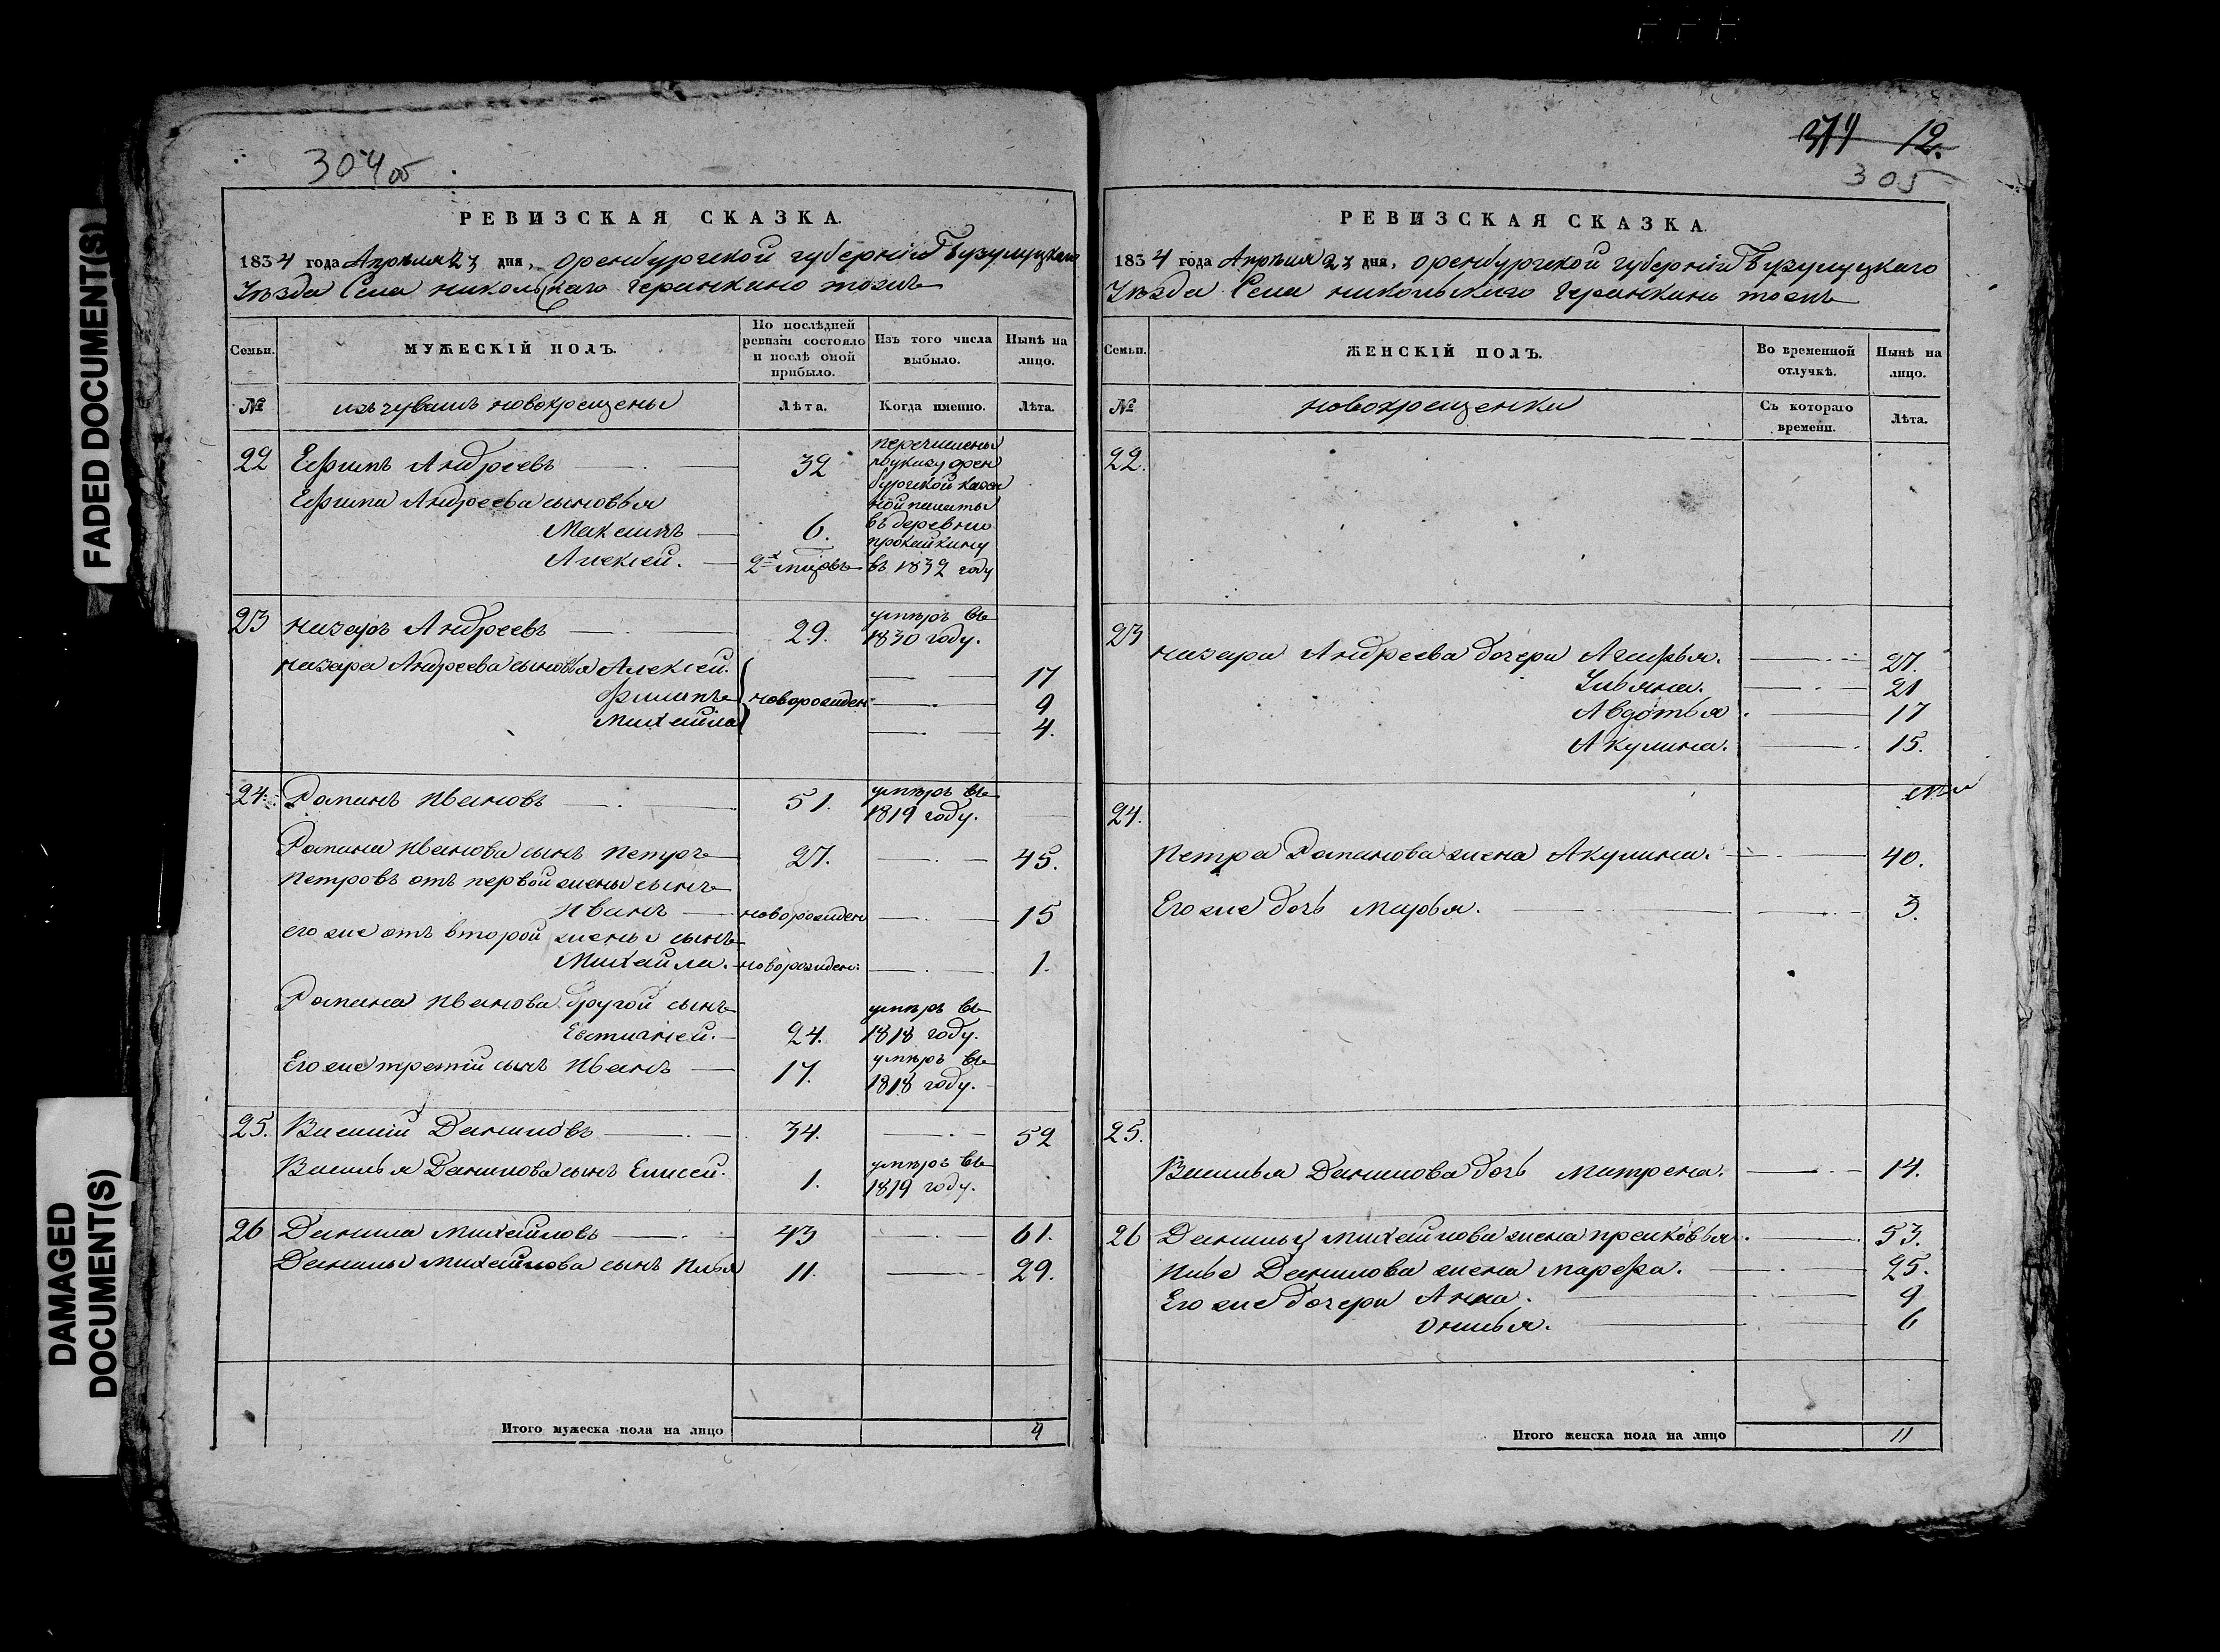 FADED DOCUMENT(S)
DAMAGED
DOCUMENT(S)
304 об
РЕВИЗСКАЯ СКАЗКА.
1834 года Апреля 23 дня, Оренбургской губерніи Бузулуцкаго
Уѣзда Села никольскаго Черинкино тожъ
Семьи.
МУЖЕСКІЙ ПОЛЪ.
По послѣдней ревизіи состояло и послѣ оной прибыло.
Изъ того числа выбыло.
Нынѣ на лицо.
№
изъ чувашъ новокрещены
Лѣта.
Когда именно.
Лѣта.
22 Ефимъ Андреевъ 32 перечислены
по указу орен
бургской казен
ной палаты
въ деревню
прокайкину
въ 1832 году
Ефима Андреева сыновья
Максимъ 6.
Алексей. 2х мцовъ
23 назаръ Андреевъ 29. умѣръ въ
1830 году.
назара Андреева сыновья Алексей. 17
филипъ новорожден 9
Михайла 4.
24. Романъ Ивановъ 51. умѣръ въ
1819 году.
Романа Иванова сынъ петръ 27. 45.
петровъ отъ первой жены сынъ
Иванъ новорожден 15
его же отъ второй жены сынъ
Михайла. новорожден. 1.
Романа Иванова другой сынъ умѣръ въ
Евстигней. 24. 1818 году.
Его же третій сынъ Иванъ 17. умѣръ въ
1818 году.
25. Василій Даниловъ 34. 52
Василья Данилова сынъ Елисей. 1. умѣръ въ
1819 году.
26 Данила михайловъ 43 61.
Данилы михайлова сынъ Илья 11. 29.
Итого мужеска пола на лицо 9
12.
305
РЕВИЗСКАЯ СКАЗКА.
1834 года Апреля 23 дня, Оренбургской губерніи Бузулуцкаго
Уѣзда Села никольскаго Черинкино тожъ
Семьи.
ЖЕНСКІЙ ПОЛЪ.
Во временной отлучкѣ.
Нынѣ на лицо.
№
новокрещенки
Съ котораго времени.
Лѣта.
22.
23
назара Андреева дочери Агафья. 27.
Ульяна. 21
Авдотья 17
Акулина. 15.
24.
петра Романова жена Акулина. 40.
Его же дочь марья. 3.
25.
Василья Данилова дочь матрена. 14.
26 Данилы михайлова жена прасковья. 53.
Ильи Данилова жена марфа. 25.
Его же дочери Анна. 9
онисья. 6
Итого женска пола на лицо 11